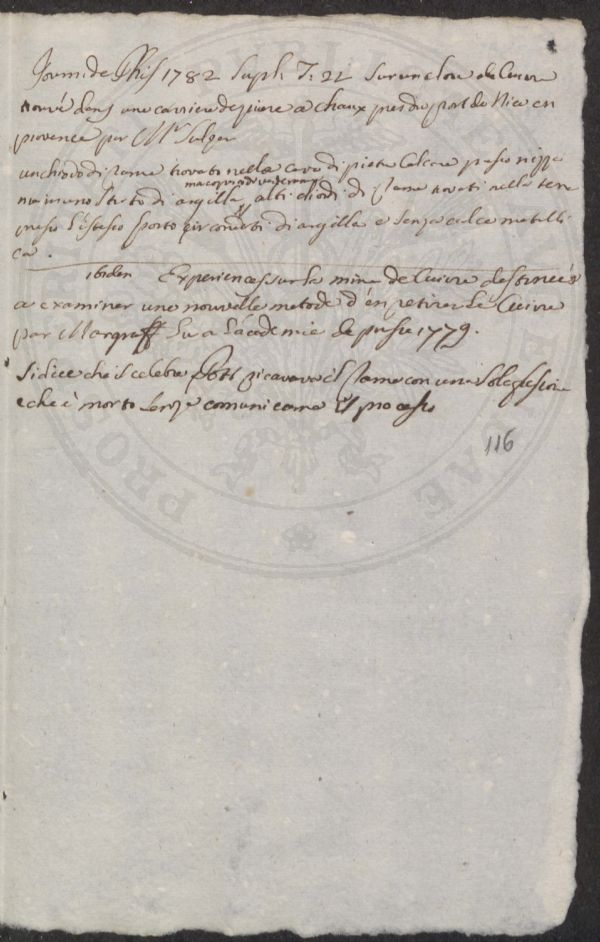 Journ: de Phis 1782 Suph. T: 22 Sur un clou de Cuivre
trouvé dans une carriere de pierre a chaux pres du port de Nice en
provence par Mr Sulzer
un chiodo di rame trovato nella cava di pietra Calcare presso nizza
in uno strato di argilla altri chiodi di rame trovati nella terra
presso l'istesso porto circondati di argilla e senza calce metalli
ca.
ibiden Experiences sur la mine de Cuivre destineés
a examiner une nouvelle metode d'en retirer Le Cuivre
par Margraff Lu a L'academie de 1779.
Si dice che il celebre Pott ricavava il rame con una sola fusione
e che è morto senza comunicarne il processo
116
PROS
CAE